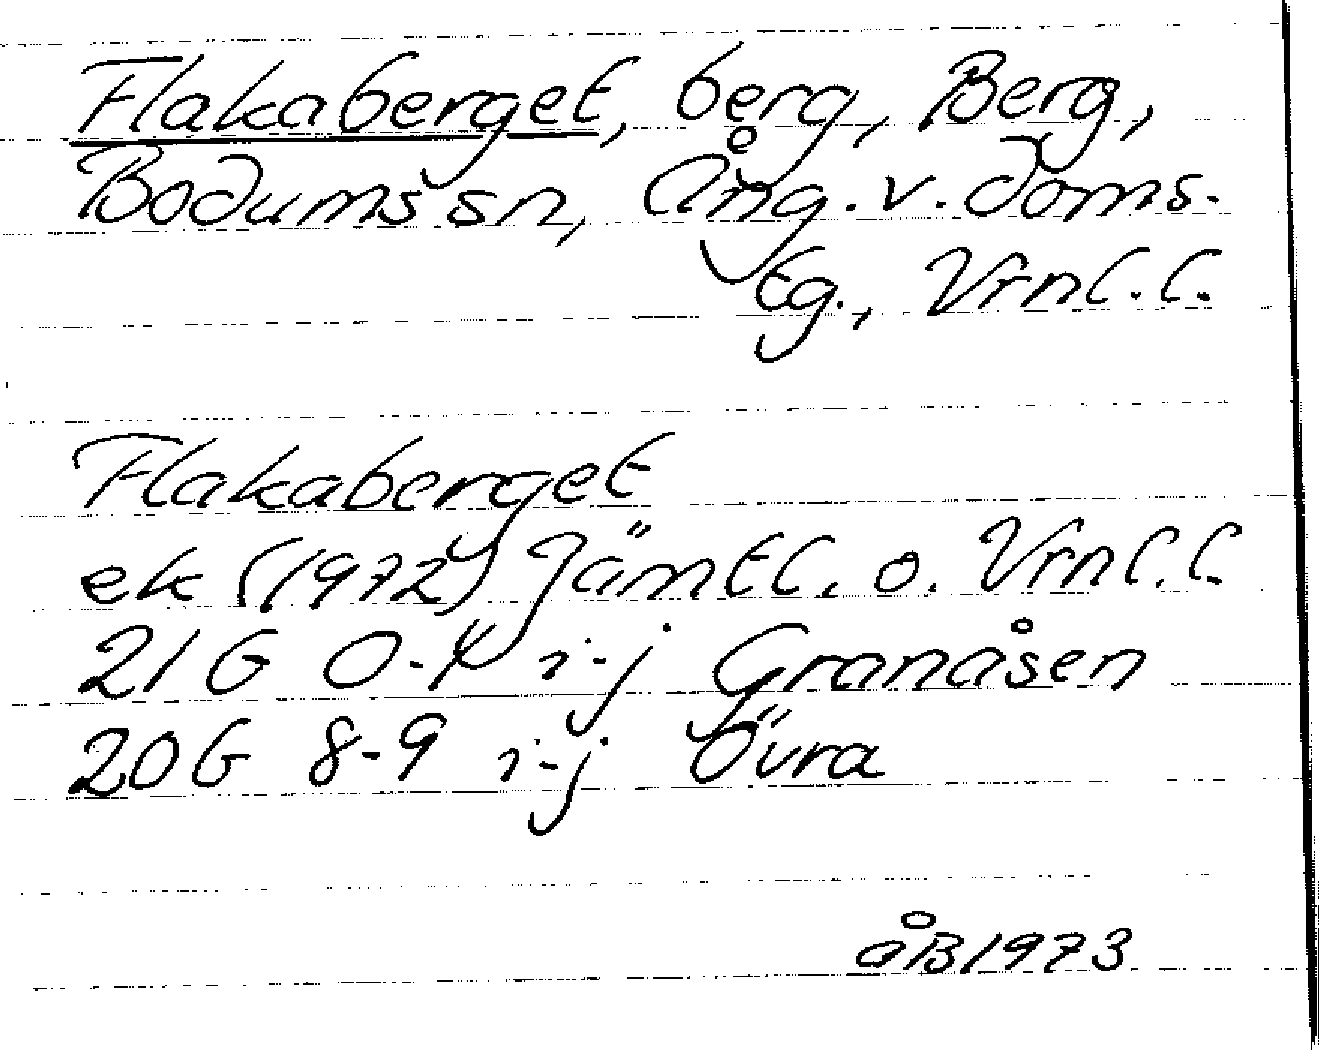 Flakaberget, berg, Berg,
Bodums sn, Ång. v. doms.
tg., Vrnl. l.
Flakaberget
ek (1972) Jämtl. o. Vrnl. l.
21G 0-1 i-j Granåsen
20G 8-9 i-j Övra
åB 1973